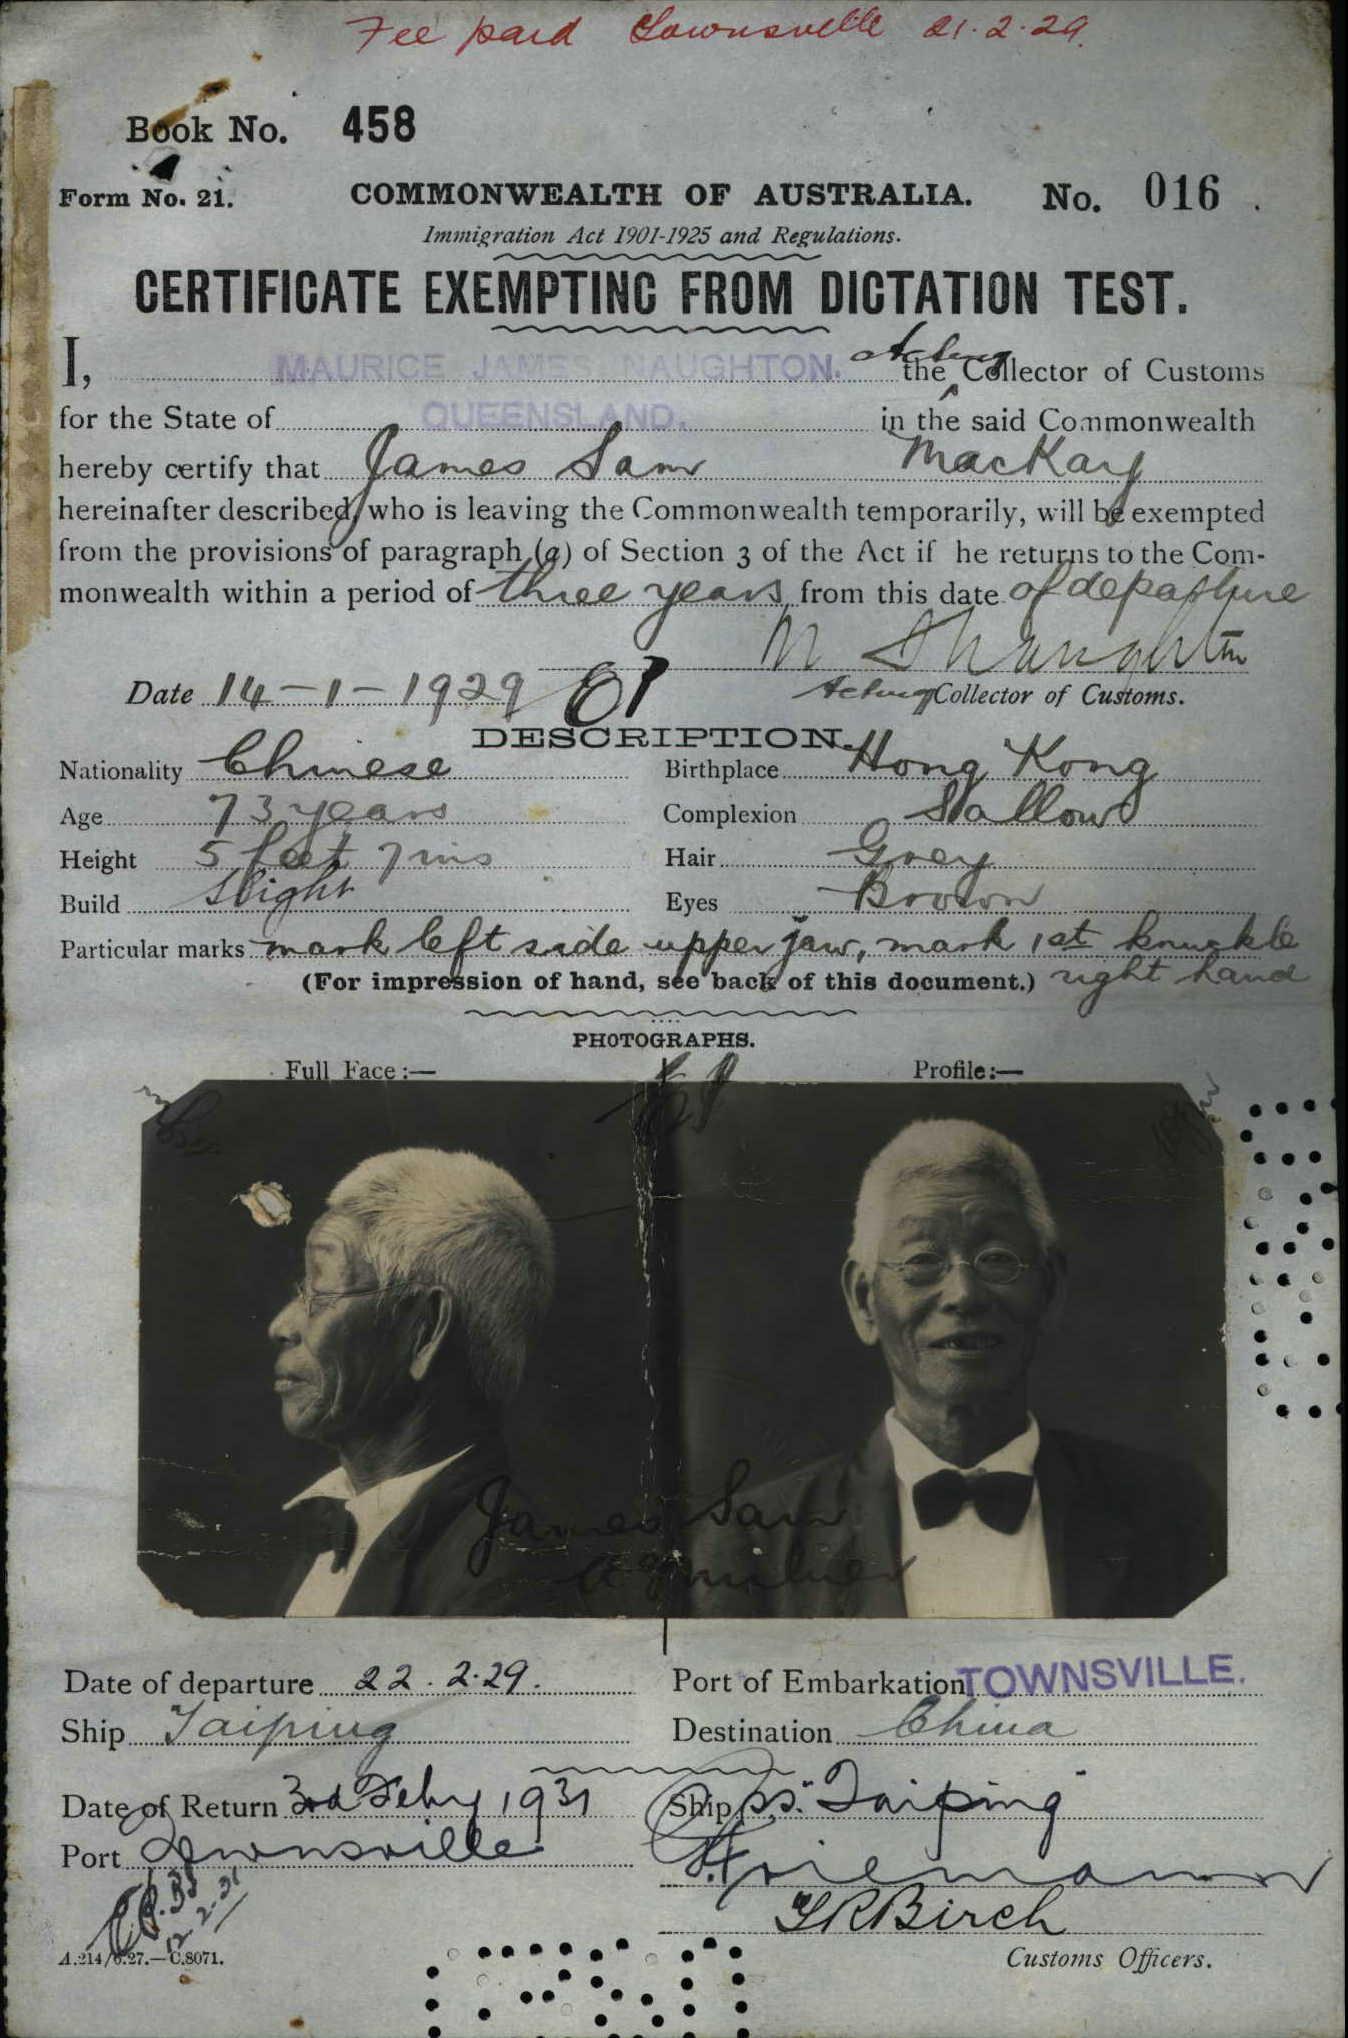 Fee paid Townsville 21.2.29.
Book No. 458
Form No. 21. COMMONWEALTH OF AUSTRALIA. No. 016.
Immigration Act 1901-1925 and Regulations.
CERTIFICATE EXEMPTING FROM DICTATION TEST.
I, MAURICE JAMES NAUGHTON. the Acting Collector of Customs
for the State of QUEENSLAND. in the said Commonwealth
hereby certify that James Sam MacKay
hereinafter described, who is leaving the Commonwealth temporarily, will be exempted
from the provisions of paragraph (a) of Section 3 of the Act if he returns to the Com-
monwealth within a period of three years from this date of departure
Date 14-1-1929 Acting Collector of Customs.
DESCRIPTION.
Nationality Chinese Birthplace Hong Kong
Age 73 years Complexion Sallow
Height 5 feet 7 ins Hair Grey
Build Slight Eyes Brown
Particular marks mark left side upper jaw, mark 1st knuckle
(For impression of hand, see back of this document.) right hand
PHOTOGRAPHS.
Full Face:— Profile:—
James Sam
Date of departure 22.2.29. Port of Embarkation TOWNSVILLE.
Ship Taiping Destination China
Date of Return 3rd Feby 1931 Ship s.s. "Taiping"
Port Townsville
Birch
12.2.31
A.214/6.27.—C.8071. Customs Officers.